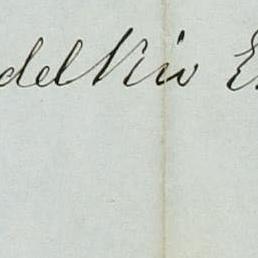 del Rio E